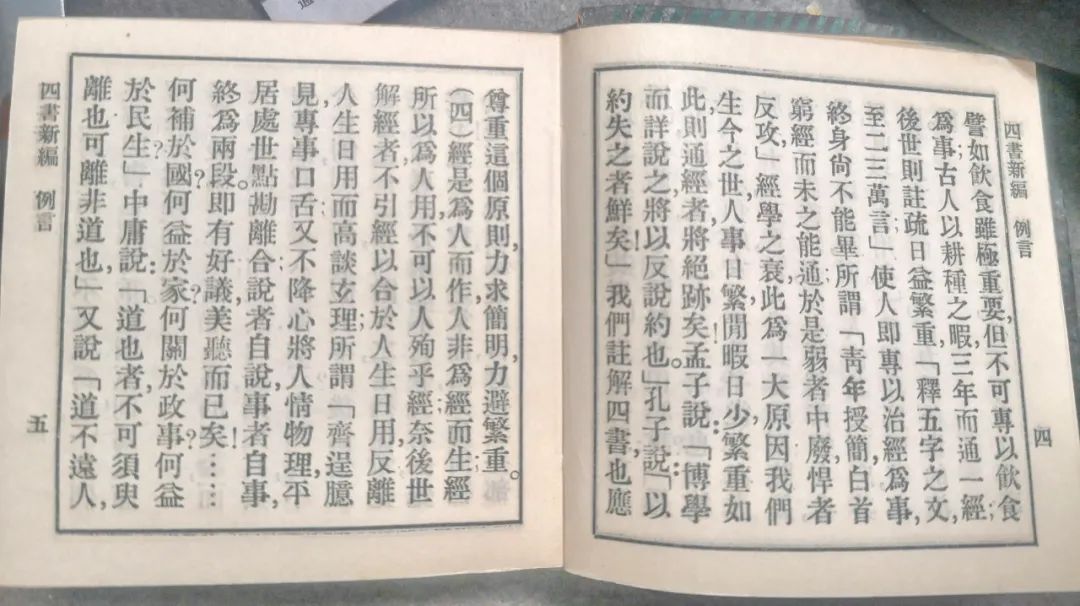 四書新編 例言
四
譬如飲食雖極重要,但不可專以飲食
爲事;古人以耕種之暇,三年而通一經;
後世則註疏日益繁重,「釋五字之文,
至二三萬言」使人即專以治經爲事,
終身尙不能畢,所謂「靑年授簡白首
窮經而未之能通,於是弱者中廢,悍者
反攻,」經學之衰,此爲一大原因,我們
生今之世,人事日繁,閒暇日少,繁重如
此,則通經者將絕跡矣。孟子說:「博學
而詳說之,將以反說約也」孔子說「以
約失之者鮮矣」我們註解四書,也應
尊重這個原則,力求簡明,力避繁重。
(四)經是爲人而作,人非爲經而生,經
所以爲人用,不可以人殉乎經;奈後世
解經者,不引經以合於人生日用,反離
人生日用而高談玄理,所謂「齊逞臆
見,專事口舌,又不降心將人情物理,平
居處世,點勘離合,說者自說,事者自事,
終爲兩段。即有好議美聽而已矣!……
何補於國?何益於家?何關於政事?何益
於民生?」中庸說:「道也者,不可須臾
離也,可離非道也,」又說「道不遠人,
四書新編 例言
五